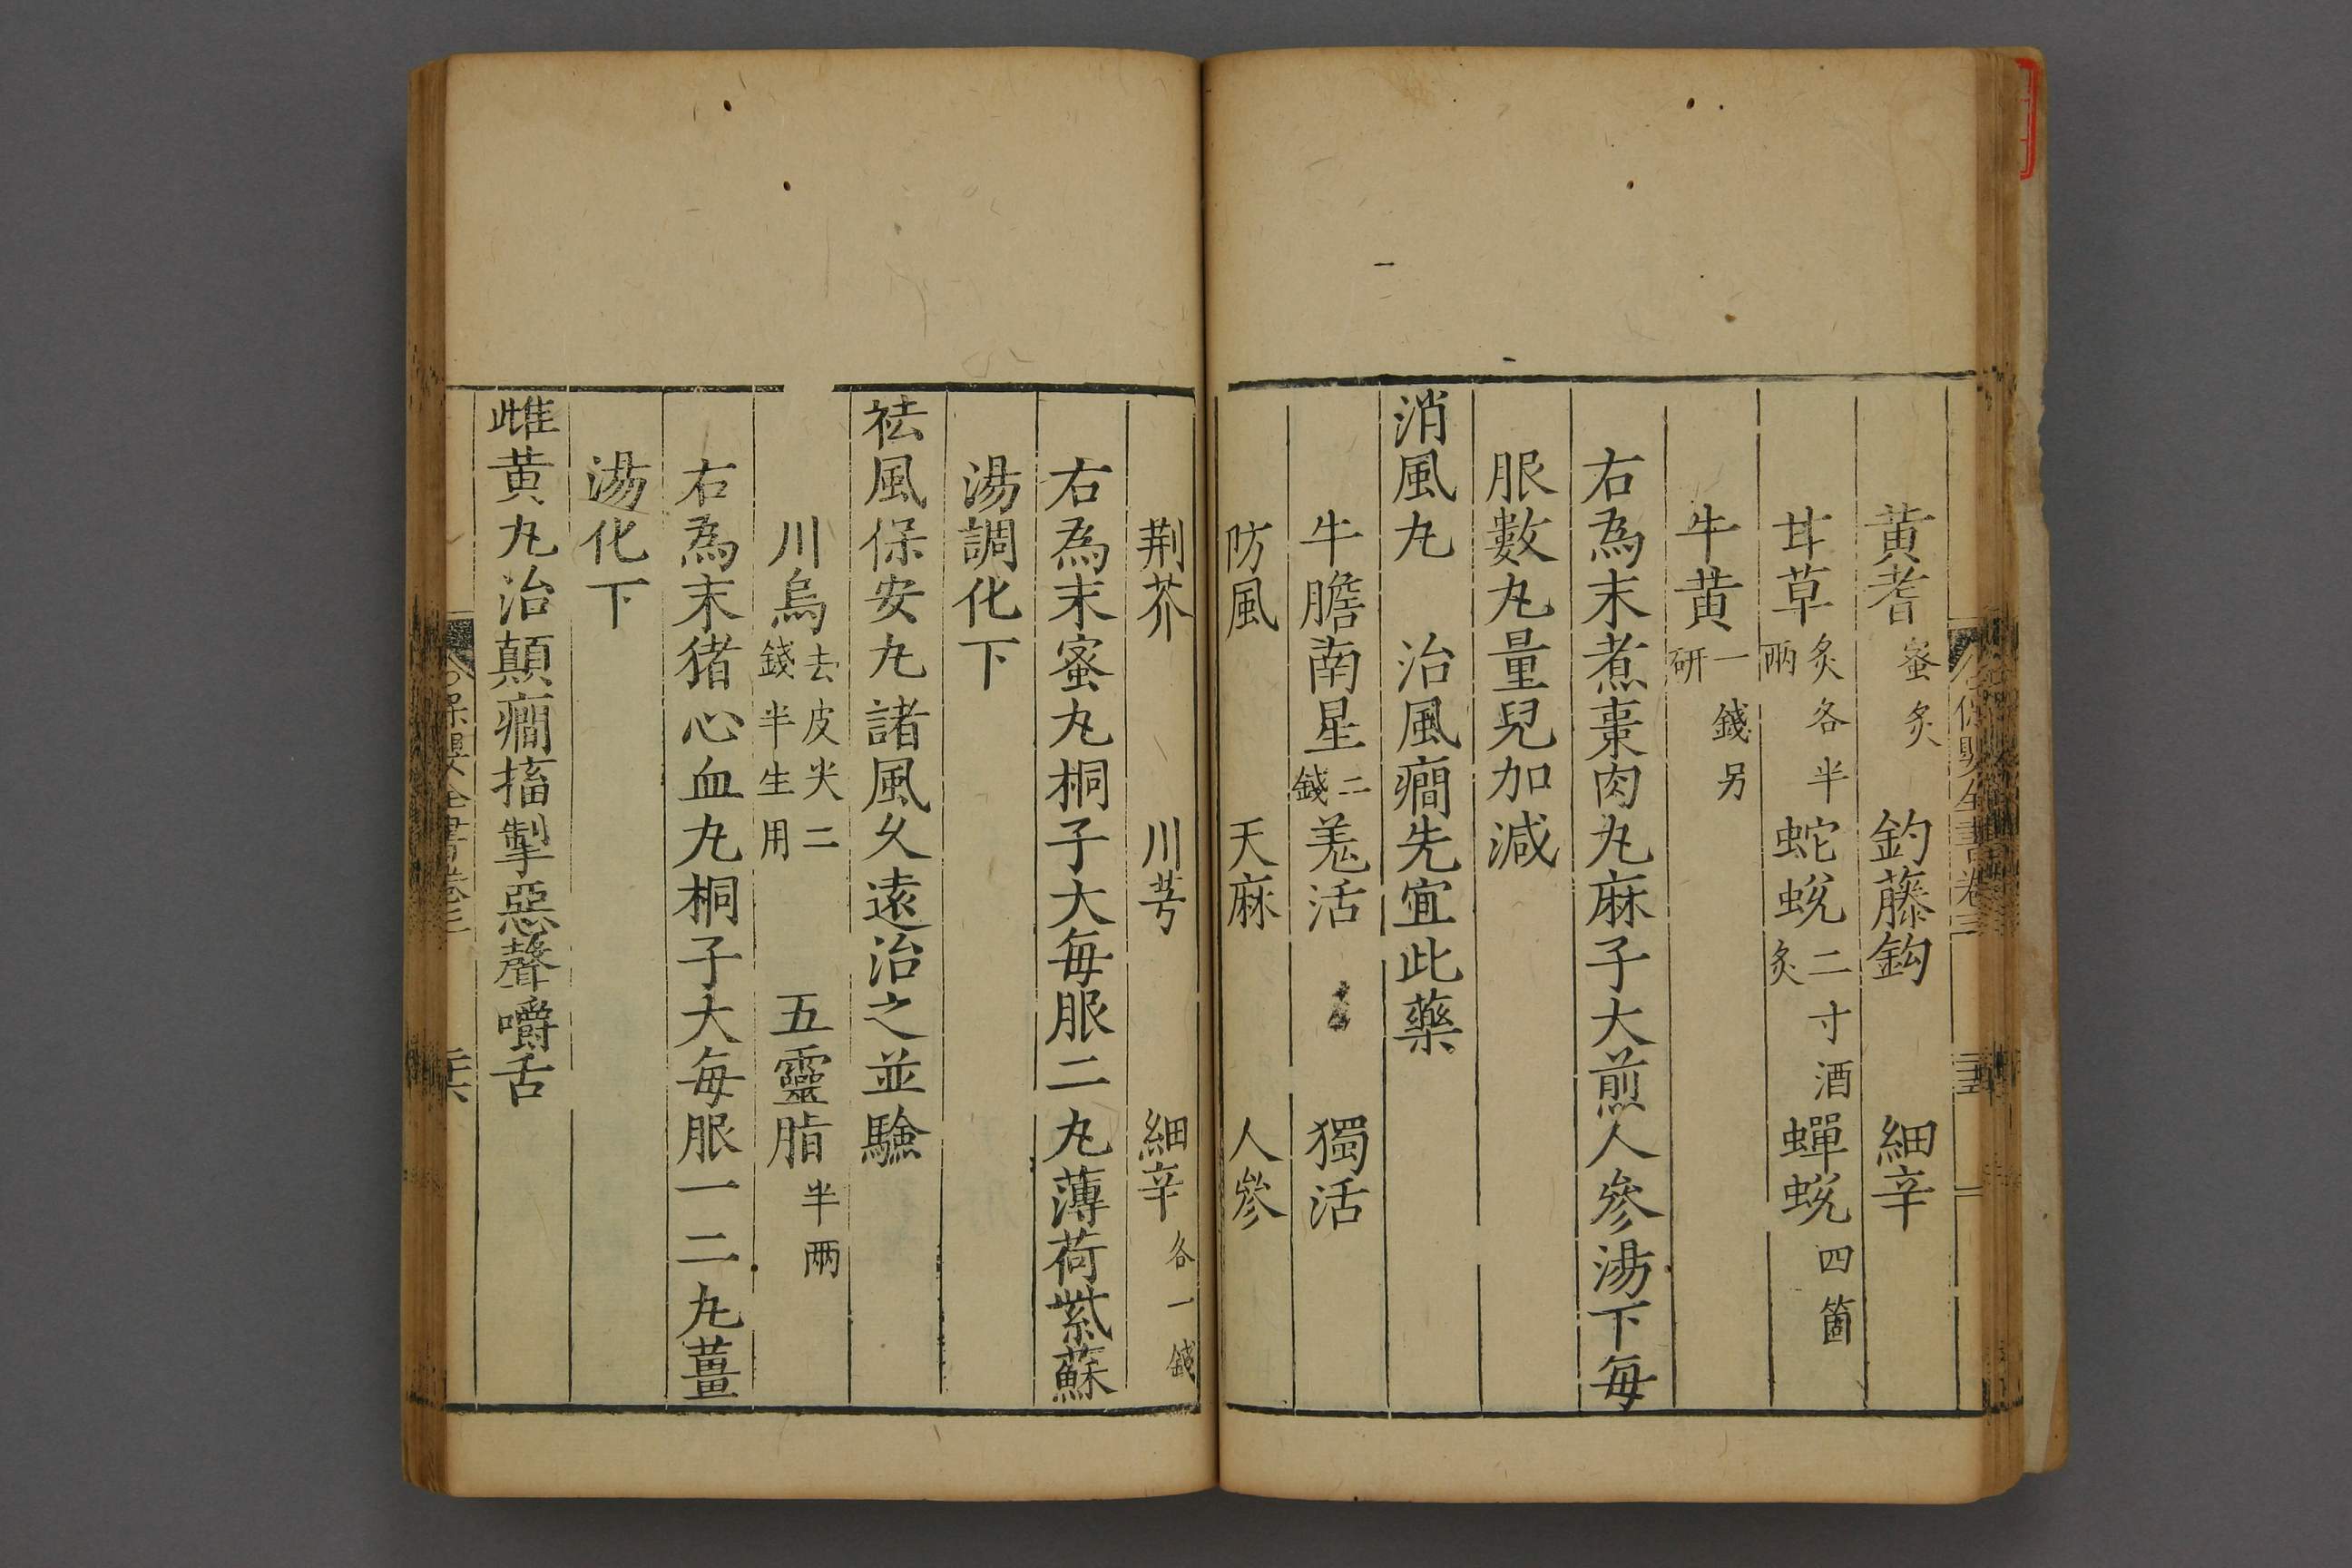 黃耆蜜炙 釣藤鈎 細辛
甘草炙各半兩 蛇蛻二寸酒炙 蟬蛻四箇
牛黃一錢另研
右為末煮棗肉丸麻子大煎人參湯下每
服數丸量兒加減
消風丸 治風癎先宜此藥
牛膽南星二錢 羗活 獨活
防風 天麻 人參
荆芥 川芎 細辛各一錢
右為末蜜丸桐子大每服二丸薄荷紫蘇
湯調化下
祛風保安丸諸風久遠治之並驗
川烏去皮尖二錢半生用 五靈脂半兩
右為末猪心血丸桐子大每服一二丸薑
湯化下
雌黃丸治顛癎搐掣惡聲嚼舌